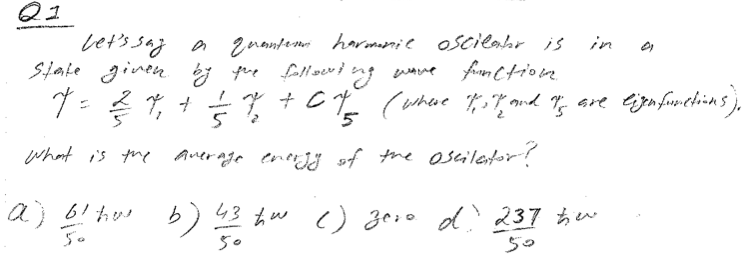 Q1
Let's say a quantum harmonic oscilator is in a
state given by the following wave function
Ψ = 2/5 Ψ₁ + 1/5 Ψ₂ + C Ψ₅ (where Ψ₁, Ψ₂ and Ψ₅ are eigenfunctions).
What is the average energy of the oscilator?
a) 61/50 ħω b) 43/50 ħω c) zero d) 237/50 ħω